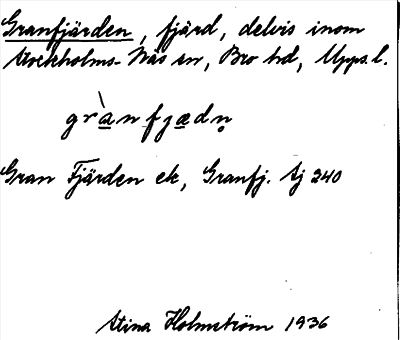 Granfjärden, fjärd, delvis inom
Stockholms-Näs sn, Bro hd, Upps. l.
gràn fjædn̥
Gran Fjärden ek, Granfj. Aj 240
Stina Holmström 1936